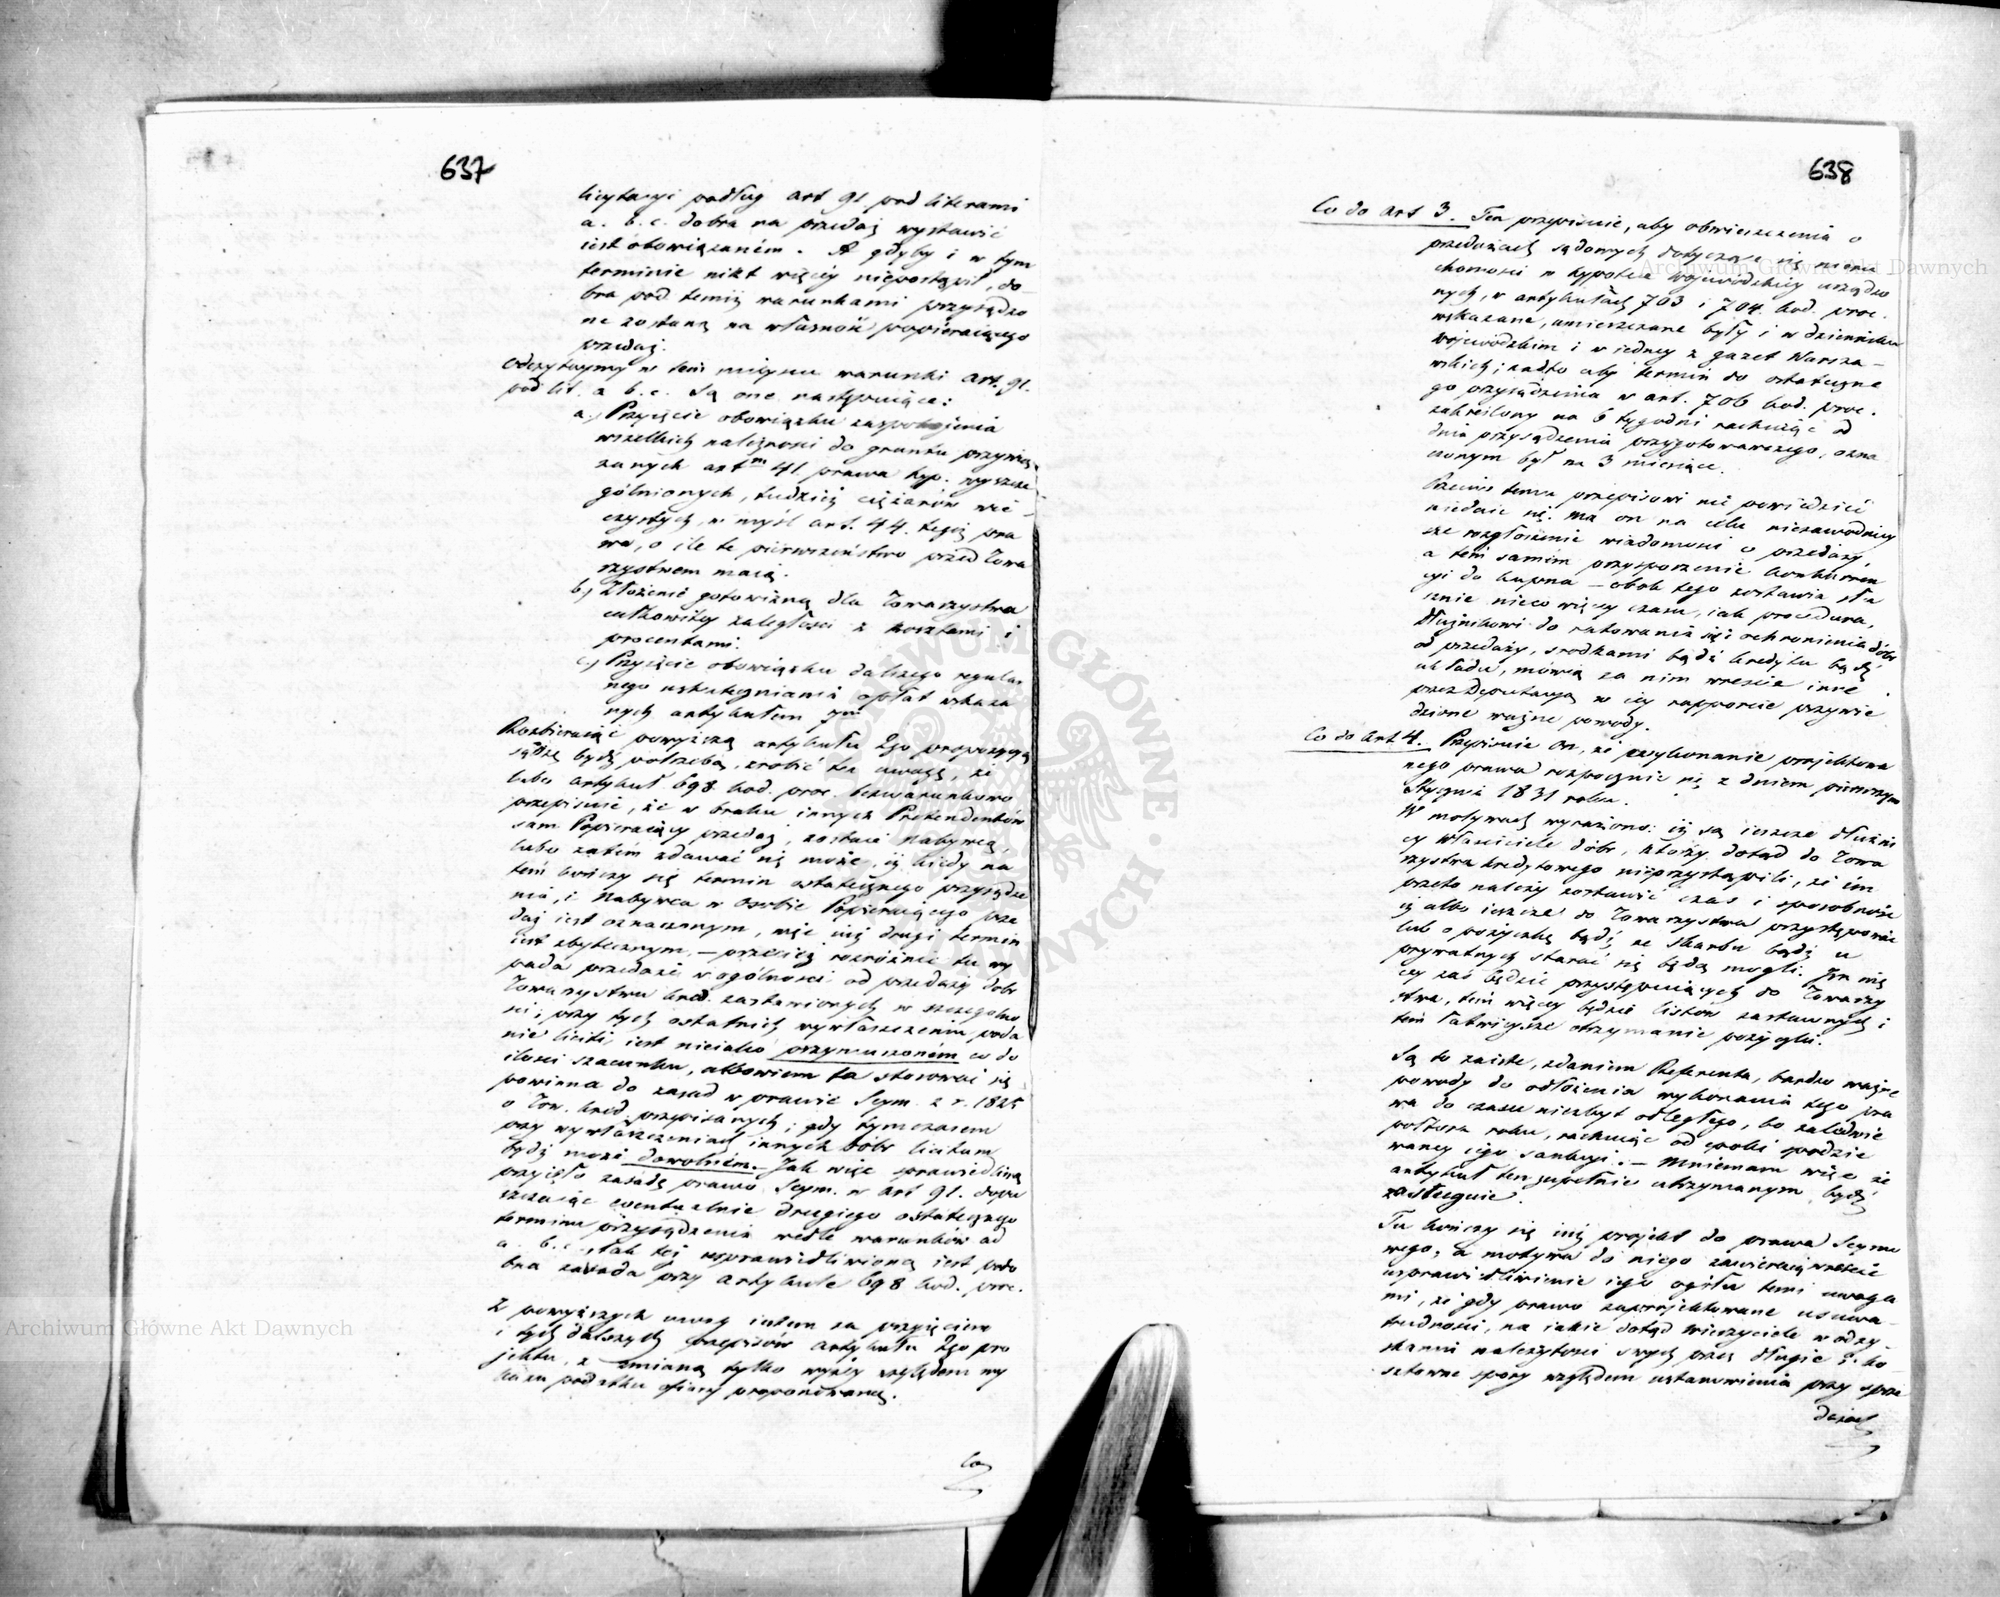 637
licytacyi podług art 91 pod literami
a. b. c. dobra na przedaż wystawić
iest obowiązaném. A gdyby i w tym
terminie nikt więcéy niepostąpił, do-
bra pod temiż warunkami przysądzo
ne zostaną na własność popieraiącego
przedaż.
Odczytaymy w tem mieyscu warunki art. 91.
pod lit. a b. c. Są one następuiące:
a.) Przyięcie obowiązku zaspokojenia
wszelkich należności do gruntu przywią
zanych artm 41 prawa hyp. wyszcze
gólnionych, tudzież ciężarów wie-
czystych w myśl art. 44. tegoż pra
wa, o ile te pierwszeństwo przed Towa
rzystwem maią.
b.) Złożenie gotowizną dla Towarzystwa
całkowitéy zaległości z kosztami i
procentami.
c.) Przyięcie obowiązku dalszego regular
nego uskuteczniania opłat wskaza
nych artykułem 7ym
Rozbieraiąc powyższą artykułu 2go propozycyą
sądzę bydź potrzebą, zrobić tę uwagę, że
lubo artykuł 698 kod. proc. bezwarunkowo
przepisuie, że w braku innych Pretendentów
sam Popieraiący przedaż, zostaie nabywcą,
lubo zatém zdawać się może, iż kiedy na
tem kończy się termin ostatecznego przysądze
nia, i Nabywca w osobie Popieraiącego prze
daż iest oznaczonym, więc iuż drugi termin
iest zbytecznym, — przecież rozróżnić tu wy
pada przedaże w ogólności od przedaży dóbr
Towarzystwu kred. zastawionych w szczególno
ści; przy tych ostatnich wywłaszczeniu poda
nie liciti iest nieiako przymuszoném co do
ilości szacunku, albowiem ta stosować się
powinna do zasad w prawie Seym. z r. 1825
o Tow. kred. przepisanych; gdy tymczasem
przy wywłaszczeniach innych dóbr licitum
bydź może dowolném. — Jak więc sprawiedliwą
przyięto zasadę prawo Seym. w art 91. dopu
szczaiąc eventualnie drugiego ostatecznego
terminu przysądzenia wedle warunków ad
a. b. c., tak też usprawiedliwioną iest podo
bna zasada przy artykule 698 kod. proc.
Z powyższych uwag iestem za przyięciem
i tych dalszych przepisów artykułu 2go pro
jektu, z zmianą tylko wyżéy względem wy
kazu podatku ofiary proponowaną.
Co
638
Co do art 3. Ten przepisuie, aby obwieszczenia o
przedażach sądowych dotyczące się nieru
chomości w hypotece Woiewódzkiéy urządzo
nych, w artykułach 703 i 704. kod. proc.
wskazane, umieszczane były i w dzienniku
woiewódzkim i w iednéy z gazet Warsza-
wskich; nadto aby termin do ostateczne
go przysądzenia w art. 706 kod. proc.
zakreślony na 6 tygodni rachuiąc od
dnia przysądzenia przygotowawczego, ozna
czonym był na 3 miesiące.
Przeciw temu przepisowi nic powiedzieć
niedaie się. Ma on na celu niezawodniey
sze rozgłoszenie wiadomości o przedaży,
a tem samém przysporzenie konkurren
cyi do kupna — obok tego zostawia słu
sznie nieco więcéy czasu, iak procedura,
dłużnikowi do ratowania się i ochronienia dóbr
od przedaży, środkami bądź kredytu bądź
układu, mówią za nim wreście inne
przez Deputacyą w iéy rapporcie przywie
dzione ważne powody.
Co do Art 4. Przepisuie on, że wykonanie projektowa
nego prawa rozpocznie się z dniem pierwszym
Stycznia 1831 roku.
W motywach wyrażono: iż są ieszcze dłużni
cy Właściciele dóbr, którzy dotąd do Towa
rzystwa kredytowego nieprzystąpili, że im
przeto należy zostawić czas i sposobność
iż albo ieszcze do Towarzystwa przystępować
lub o pożyczkę bądź ze skarbu bądź u
prywatnych starać się będą mogli. Im wię
céy zaś będzie przystępuiących do Towarzy
stwa, tem więcéy będzie listów zastawnych i
tem łatwieysze otrzymanie pożyczki.
Są to zaiste, zdaniem Referenta, bardzo ważne
powody do odłożenia wykonania tego pra
wa do czasu niezbyt odległego, bo zaledwie
półtora roku, rachuiąc od epoki spodzie
wanéy iego sankcyi. — Mniemam więc że
artykuł ten zupełnie utrzymanym bydź
zasługuie.
Tu kończy się iuż projekt do prawa Seymo
wego, a motywa do niego zawieraią wreście
usprawiedliwienie iego ogółu temi uwaga
mi, że gdy prawo zaprojektowane usuwa
trudności, na iakie dotąd wierzyciele w odzy-
skaniu należytości swych przez długie i ko-
sztowne spory względem ustanowienia przy sprze
dażach